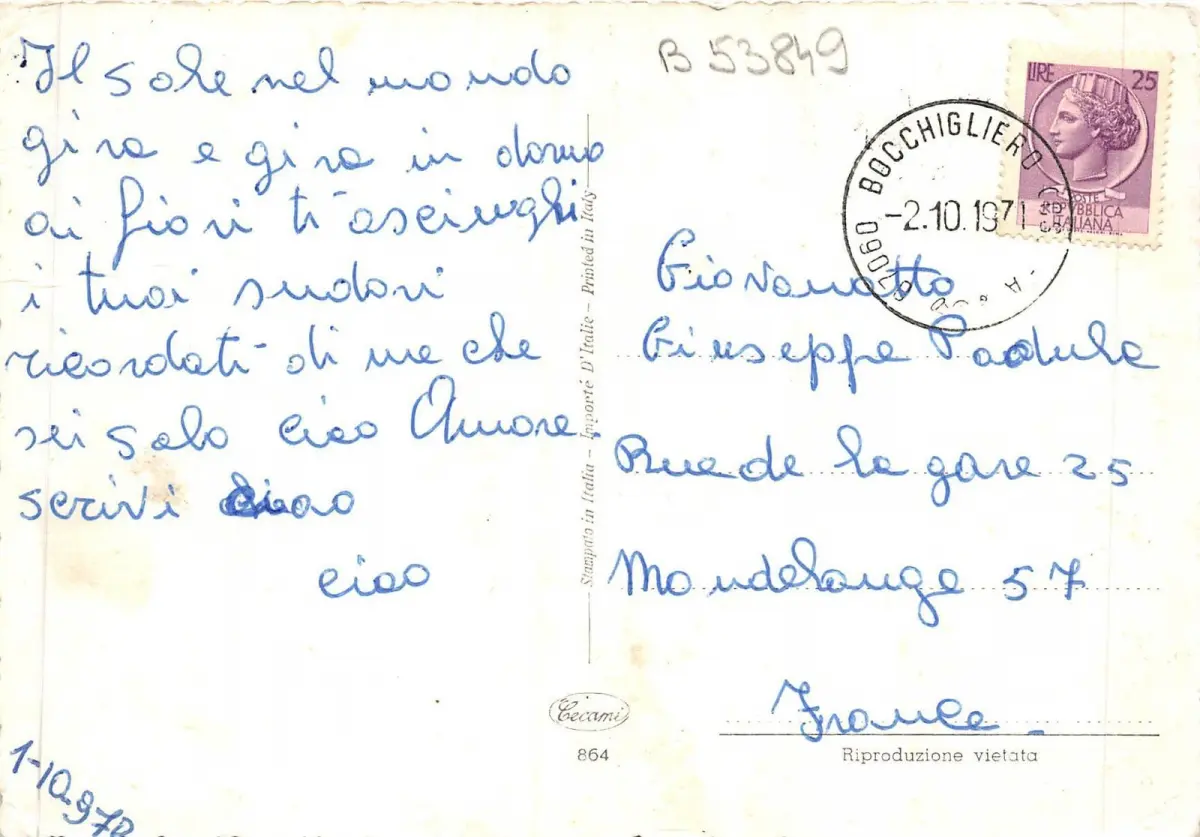 B 53849
Il sole nel mondo
gira e gira in dono
ai fiori ti asciughi
i tuoi sudori
ricordati di me che
sei solo ciao Amore.
scrivi ciao
ciao
1-10-97
LIRE 25
POSTE
REPVBBLICA
ITALIANA
87060 BOCCHIGLIERO
-2.10.1971
Giovanotto
Giuseppe Padula
Rue de la gare 25
Mondelange 57
France
Stampato in Italia - Importé D'Italie - Printed in Italy
Cecami
864
Riproduzione vietata